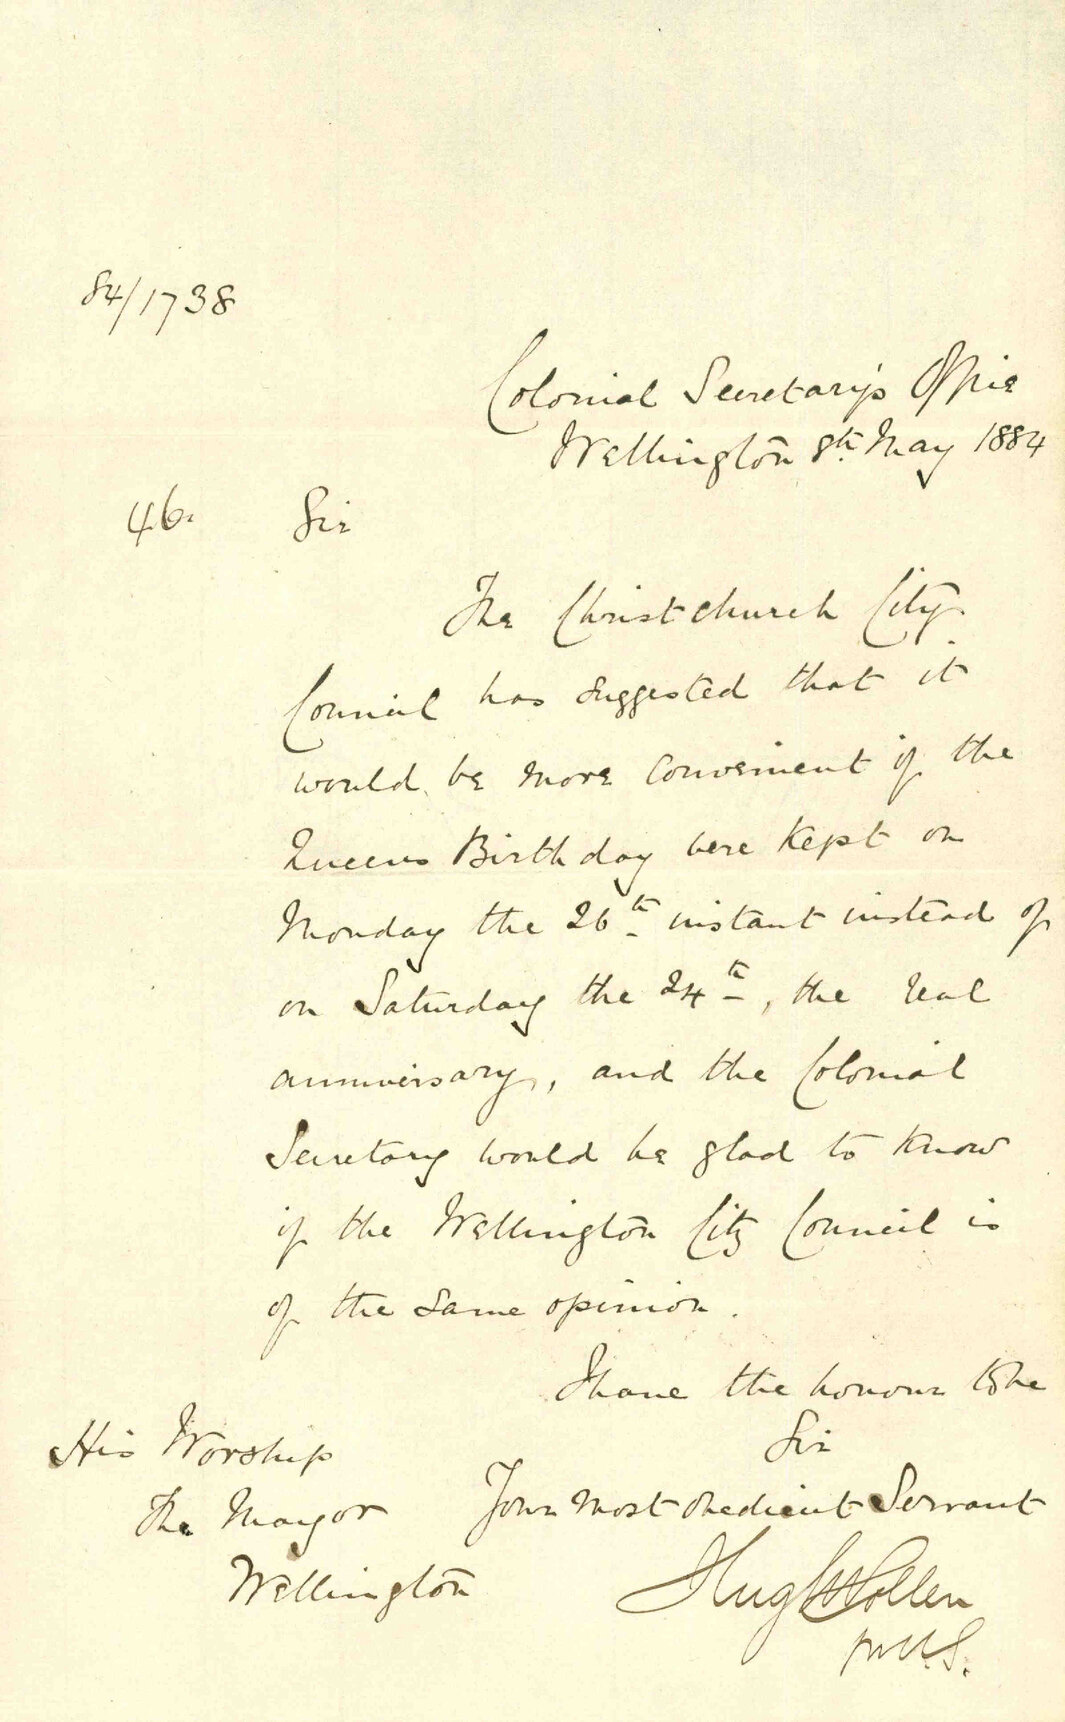 84/1738
Colonial Secretary's Office
Wellington 8th May 1884
46.
Sir
The Christchurch City
Council has suggested that it
would be more convenient if the
Queens Birthday were kept on
Monday the 26th instant instead of
on Saturday the 24th, the real
anniversary, and the Colonial
Secretary would be glad to know
if the Wellington City Council is
of the same opinion.
I have the honour to be
Sir
Your most obedient Servant
Hugh Pollen
His Worship
The Mayor
Wellington